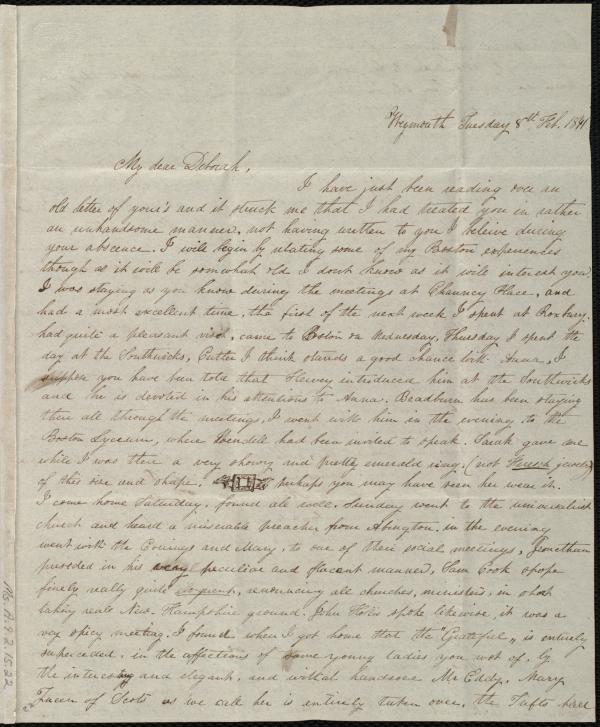 Weymouth Tuesday 8th Feb. 1841
My dear Deborah,
I have just been reading over an
old letter of your's and it struck me that I had treated you in rather
an unhandsome manner, not having written to you I beleive during
your abscence. I will begin by relating some of my Boston experiences
though as it will be somewhat old I dont know as it will interest you
I was staying as you know during the meetings at Chauncy Place, and
had a most excellent time, the first of the next week I spent at Roxbury,
had quite a pleasant visit, came to Boston on Wednesday, Thursday I spent the
day at the Southwicks, I think stands a good chance with Anna, I
suppose you have been told that Hervey introduced him at the Southwicks
and he is devoted in his attentions to Anna. Bradburn has been staying
there all through the meetings, I went with him in the evening to the
Boston Lyceum, where Wendell had been invited to speak. gave me
while I was there a very showy and pretty emerald ring, (not French jewelry)
of this size and shape. perhaps you may have seen her wear it.
I come home Saturday, found all well. Sunday went to the universalist
church and heard a miserable preacher from Abington, in the evening
went with the Cowings and Mary, to one of their social meetings, Jonathan
presided in his very peculiar and flacent manner, Sam Cook spoke
finely really quite eloquent, renouncing all churches, ministers, in short
taking reals New-Hampshire ground. John Hollis spoke likewise, it was a
very spicy meeting. I found when I got home that the "Grateful" is entirely
superceded, in the affections of some young ladies you wot of, by
the interesting and elegant, and withal handsome Mr Eddy, Mary
of Scots as we call her is entirely taken over, the Tufts have
Ms. A.9.2.15.22